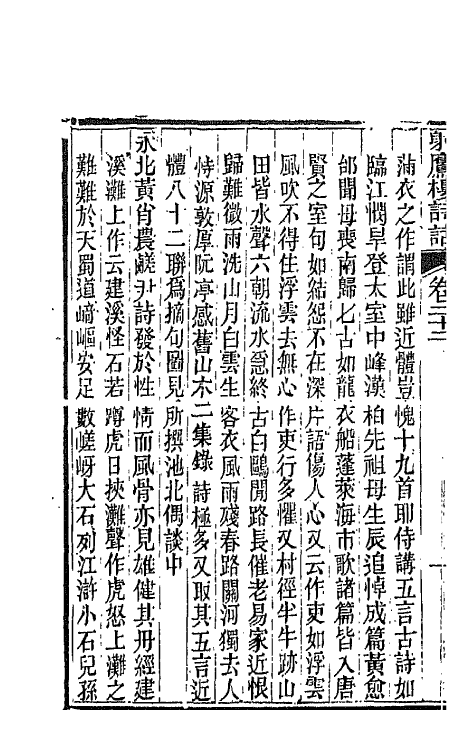 射鷹樓詩話　卷二十二
蒲衣之作謂此雖近體豈愧十九首耶侍講五言古詩如
臨江憫旱登太室中峰漢柏先祖母生辰追悼成篇黃愈
邰聞母喪南歸七古如龍衣船蓬萊海市歌諸篇皆入唐
賢之室句如結怨不在深片語傷人心又云作吏如浮雲
風吹不得住浮雲去無心作吏行多懼又村徑半牛跡山
田皆水聲六朝流水急終古白鷗閒路長催老易家近恨
歸難微雨洗山月白雲生客衣風雨殘春路關河獨去人
侍源敦厚阮亭感舊山木二集錄詩極多又取其五言近
體八十二聯為摘句圖見所撰池北偶談中
永北黃肖農鹺尹詩發於性情而風骨亦見雄健其冊經建
溪灘上作云建溪怪石若蹲虎日挾灘聲作虎怒上灘之
難難於天蜀道崎嶇安足數嵯岈大石列江滸小石兒孫